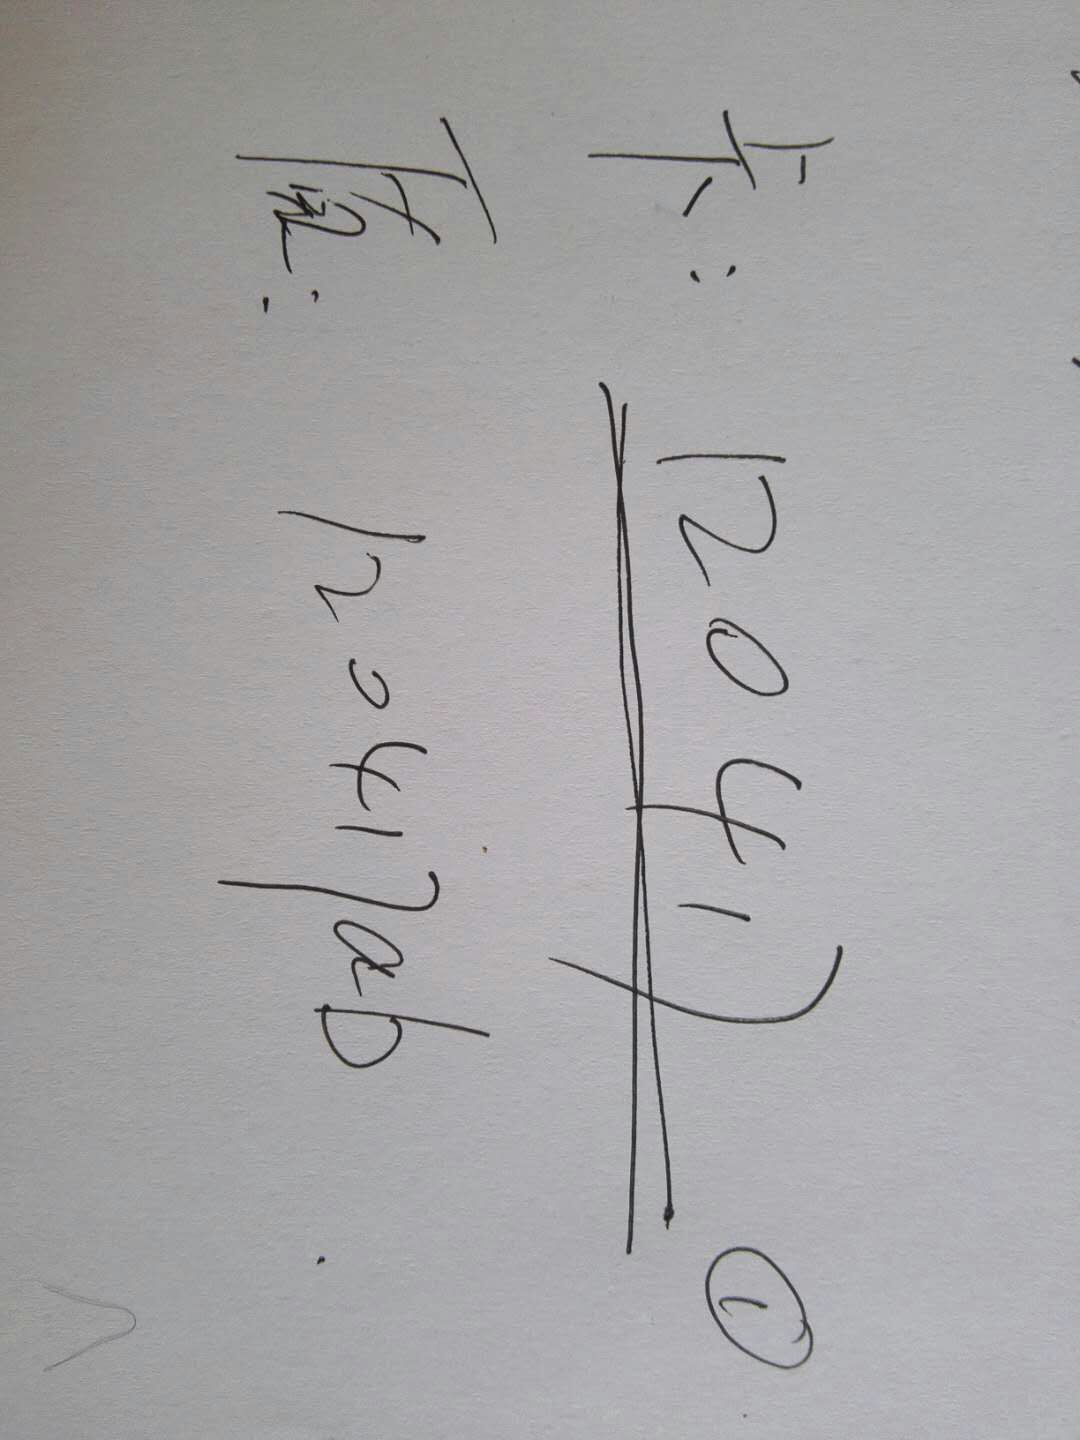 卡: 120417 ①
: 120417ab